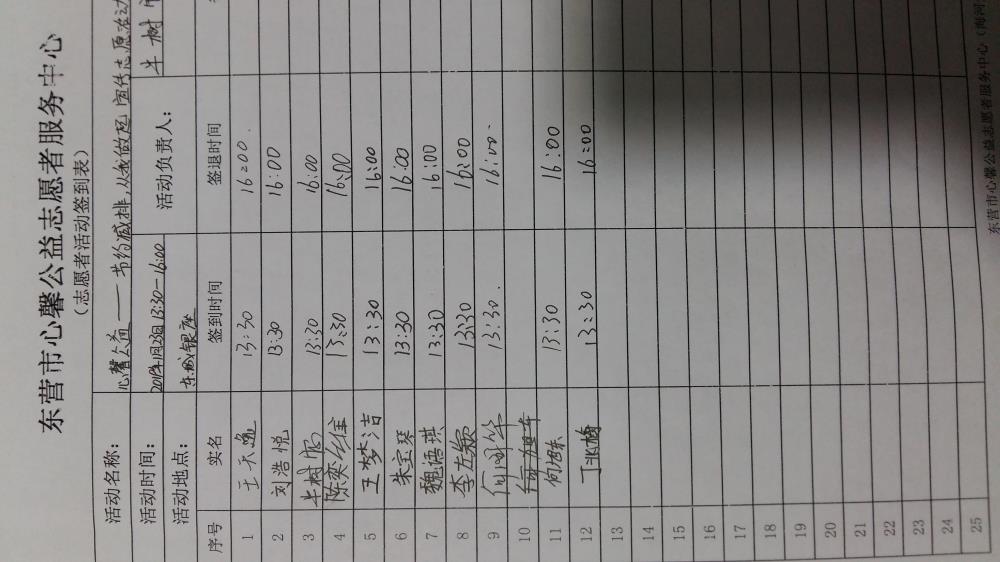 东营市心馨公益志愿者服务中心
（志愿者活动签到表）
活动名称： 心馨公益——节约减排,从我做起 宣传志愿活动
活动时间： 13:30-16:00 活动负责人： 牛树
活动地点： 东城银座
序号 实名 签到时间 签退时间
1 王天逸 13:30 16:00
2 刘浩悦 13:30 16:00
3 牛树 13:30 16:00
4 陈奕 13:30 16:00
5 王梦洁 13:30 16:00
6 朱宝琴 13:30 16:00
7 魏语琪 13:30 16:00
8 李左颖 13:30 16:00
9 13:30 16:00
10
11 13:30 16:00
12 丁兆梅 13:30 16:00
13
14
15
16
17
18
19
20
21
22
23
24
25
东营市心馨公益志愿者服务中心（海河